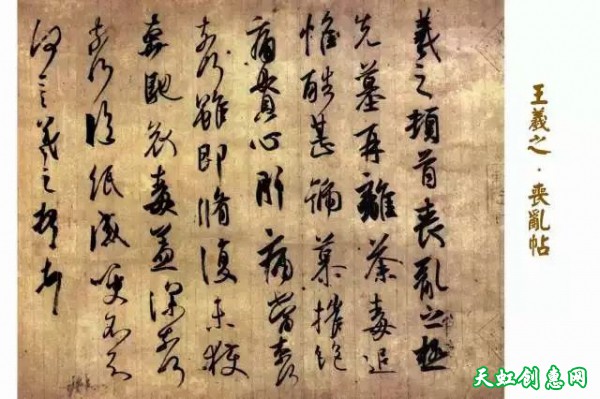 羲之頓首喪亂之極
先墓再離荼毒追
惟酷甚號慕摧絕
痛貫心肝痛當奈何
奈何雖即脩復未獲
奔馳哀毒益深奈何
奈何臨紙感哽不知
何言羲之頓首頓首
王羲之·喪亂帖
天虹创惠网